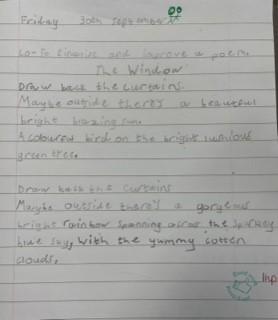 Friday 30th September
Lo-To finalise and improve a poem.
The Window
Draw back the curtains.
Maybe outside there's a beautiful
bright blazing sun.
A colourful bird on the bright luscious
green tree.
Draw back the curtains
Maybe outside there's a gorgeous
bright rainbow spanning across the sparkley
blue sky, with the yummy cotten
clouds.
Inp